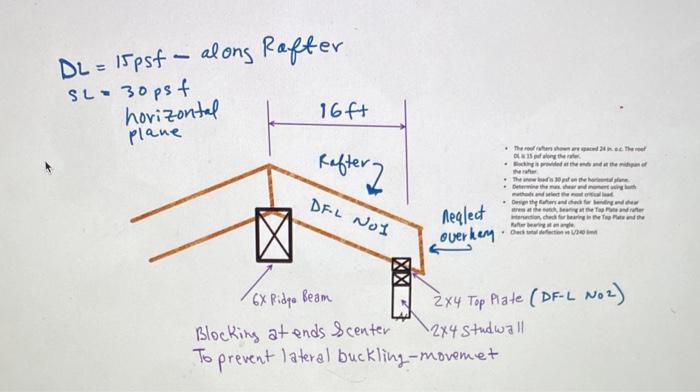 DL = 15psf - along Rafter
SL = 30 psf
horizontal
plane
16ft
Rafter
DFL No1
Neglect
overhang
• The roof rafters shown are spaced 24 in. o.c. The roof
DL is 15 psf along the rafter.
• Blocking is provided at the ends and at the midspan of
the rafter.
• The snow load is 30 psf on the horizontal plane.
• Determine the max. shear and moment using both
methods and select the most critical load.
• Design the Rafters and check for bending and shear
stress at the notch, bearing at the Top Plate and rafter
intersection, check for bearing in the Top Plate and the
Rafter bearing at an angle.
• Check total deflection vs L/240 limit
6X Ridge Beam
2x4 Top Plate (DF-L No2)
2x4 Studwall
Blocking at ends & center
To prevent lateral buckling-movemet